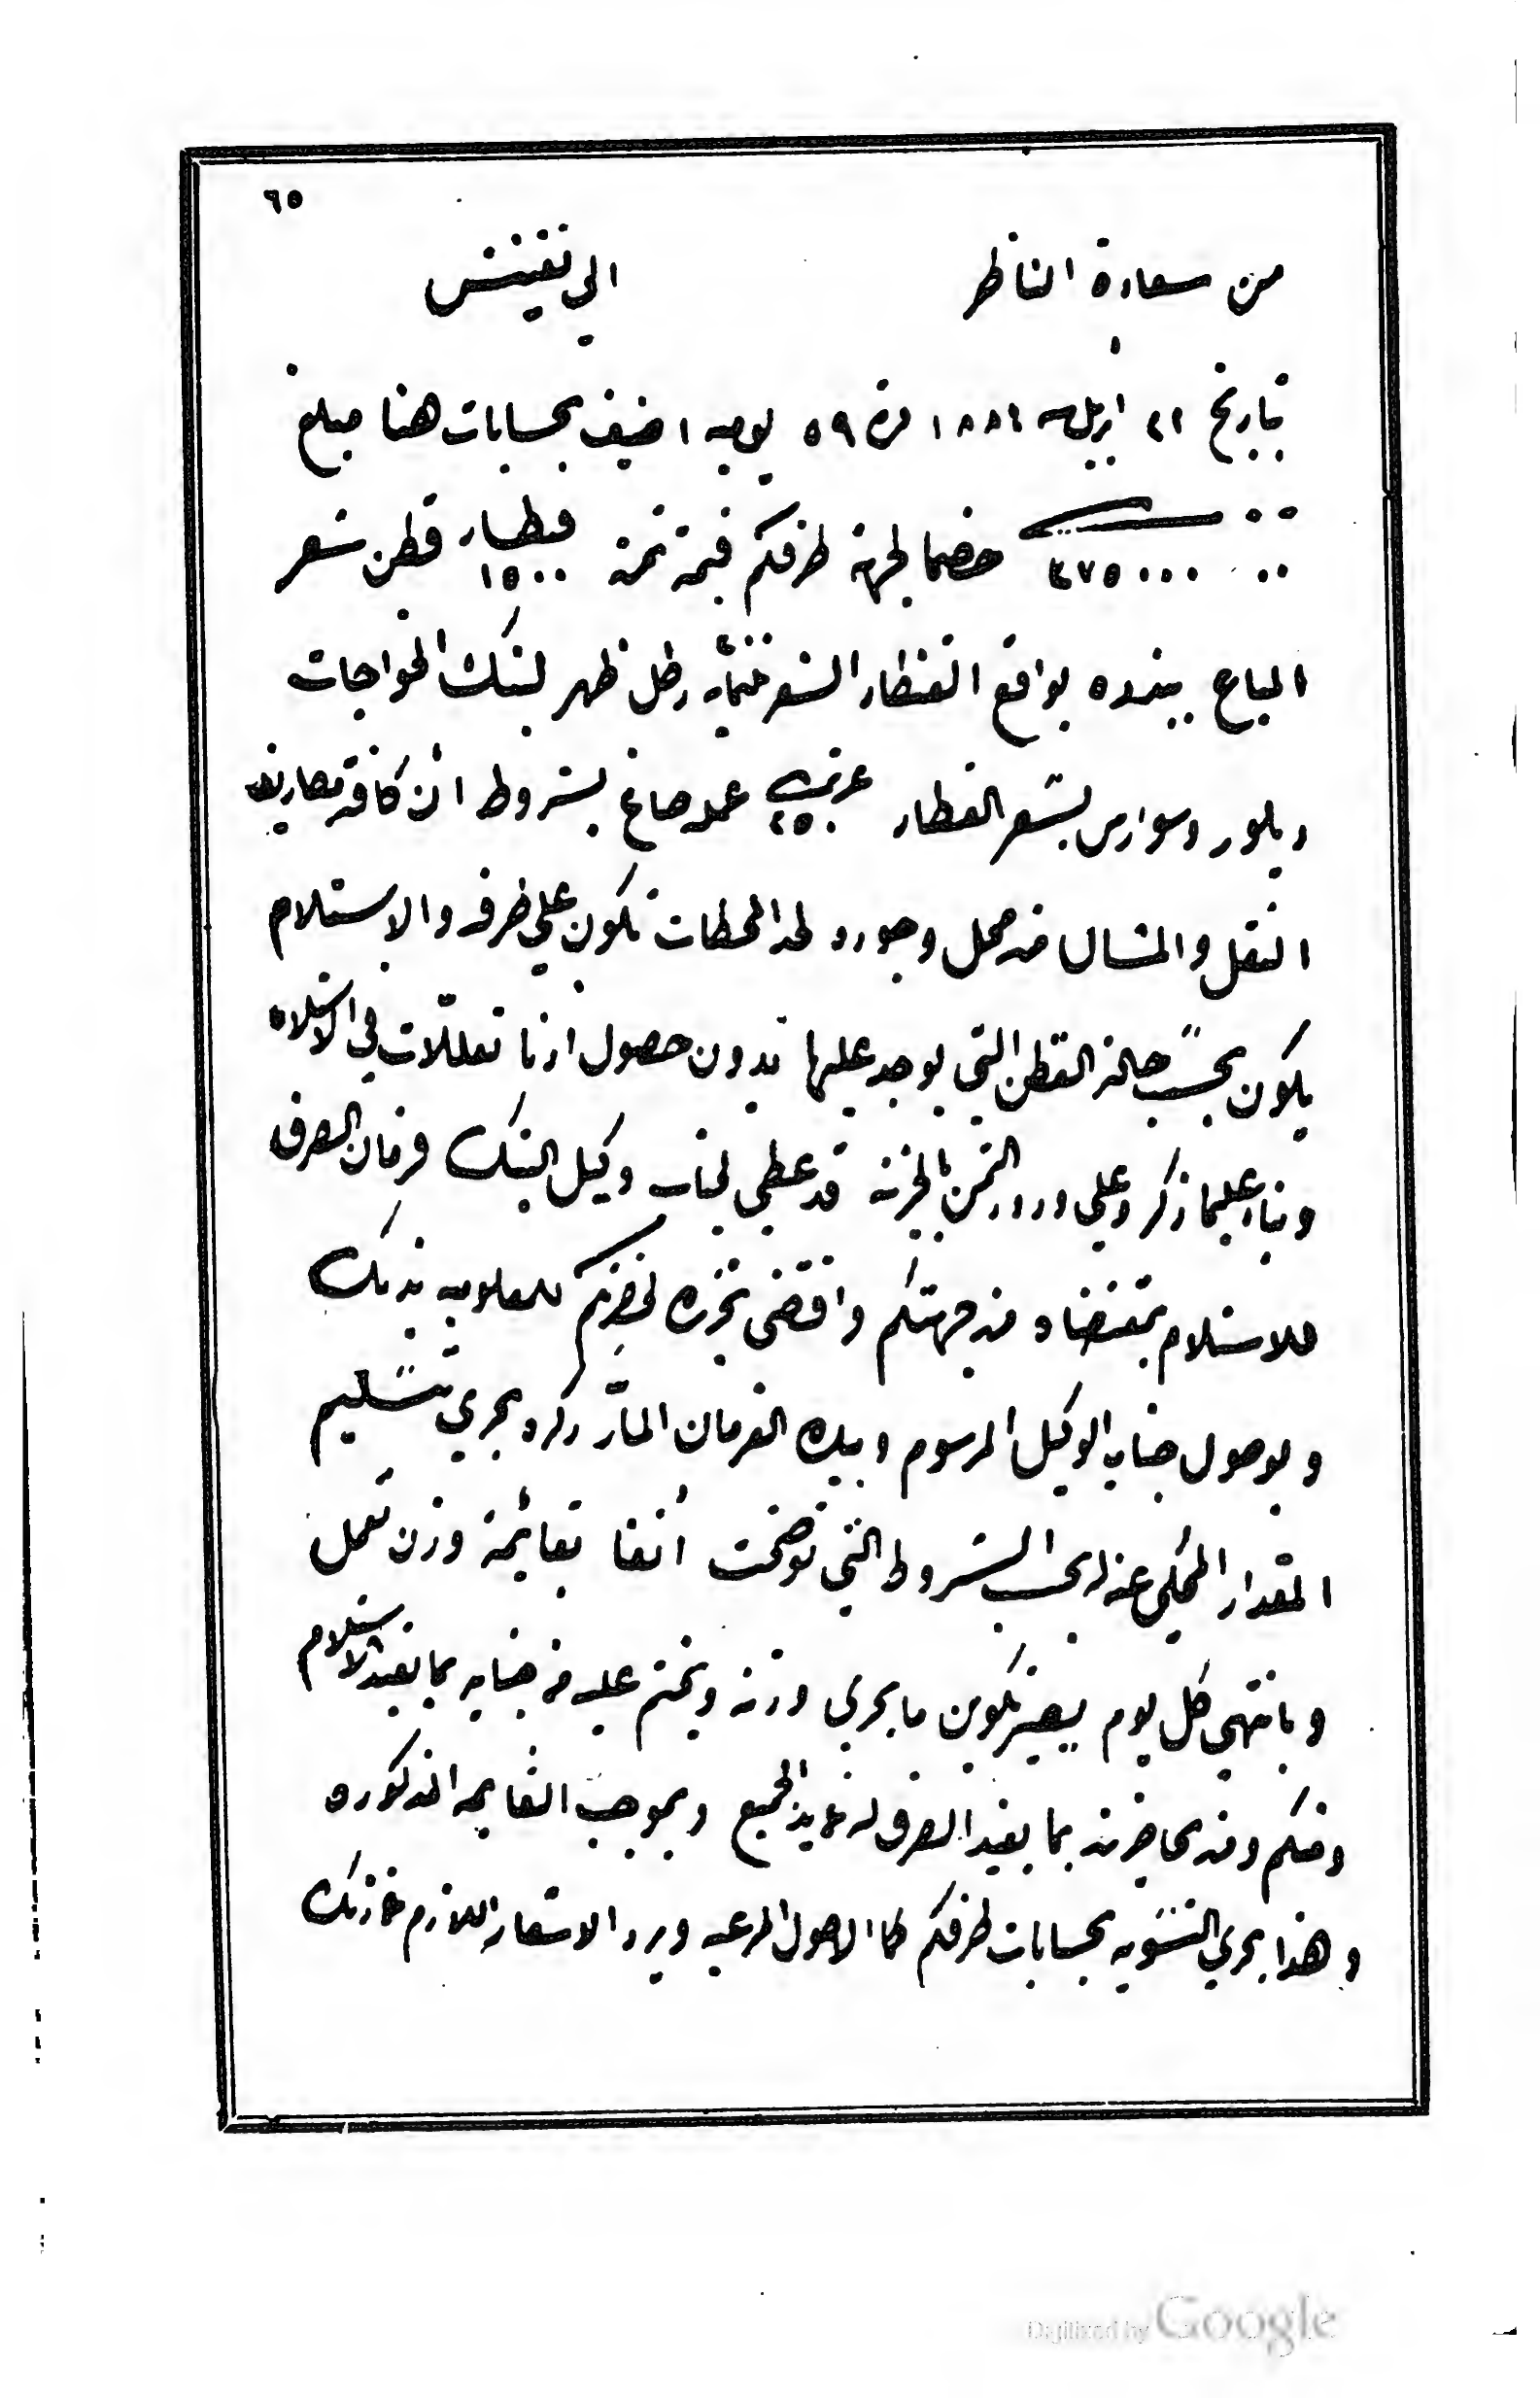 ٦٥
من سعادة الناظر الى تفتيش
بتاريخ ٢٢ ابريل ١٨٨٤ نمرة ٥٩ يوميه اضيف بحسابات هنا مبلغ
٣٧٥٠٠٠ خصما لجهة طرفكم قيمة ثمن قنطار ١٥٠٠ قطن شعر
المباع بواقع القنطار الشعر رطل ظهر لبنك الخواجات
وسوارس بسعر القنطار ٢٥٠ عمله صاغ بشروط ان كافة مصاريف
النقل والمشال من محل وجوده لحد المحطات تكون على طرفه والاستلام
يكون بحسب حالة القطن التي يوجد عليها بدون حصول ادنا تعللات في الاستلام
وبناء عليما ذكر وعلى ورود الثمن بالخزنه قد عطي لجناب وكيل البنك فرمان الصرف
للاستلام بمقتضاه من جهتكم واقتضى تحريره لحضرتكم للمعلوميه بذلك
وبوصول جناب الوكيل المرسوم وبيده الفرمان المار ذكره يجري تسليم
المقدار المحكي عنه له بحسب الشروط التي توضحت أنفا بقائمة وزن تعمل
وبانتهى كل يوم يصير تكوين ما يجري وزنه ويختم عليه من جنابه بما يفيد الاستلام
ومنكم ومن مخازنه بما يفيد الصرف له الجميع وبموجب القايمه المذكوره
وهذا يجري التسويه بحسابات طرفكم كما الاصول المرعيه ويرد الاشعار اللازم عن ذلك
Digitized by Google